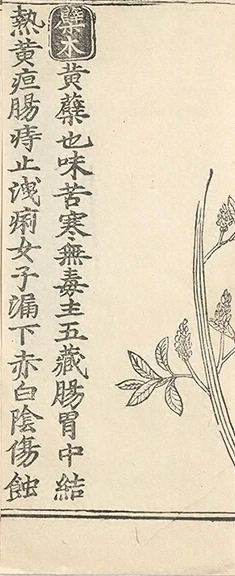 蘗木
黃蘗也味苦寒無毒主五藏腸胃中結
熱黃疸腸痔止洩痢女子漏下赤白陰傷蝕